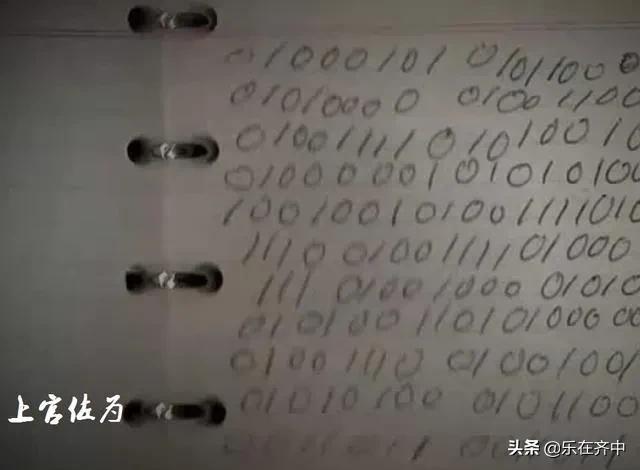 01000101 0101100 0
01010000 01001100
01001111 0101001 0
01000001 01010100
1001001 01001111010
1110 01001111 01000
111 01001000 01010
010100 110101000 00
01001110 01001001
01010100 0101100
上官佐为
头条 @乐在齐中